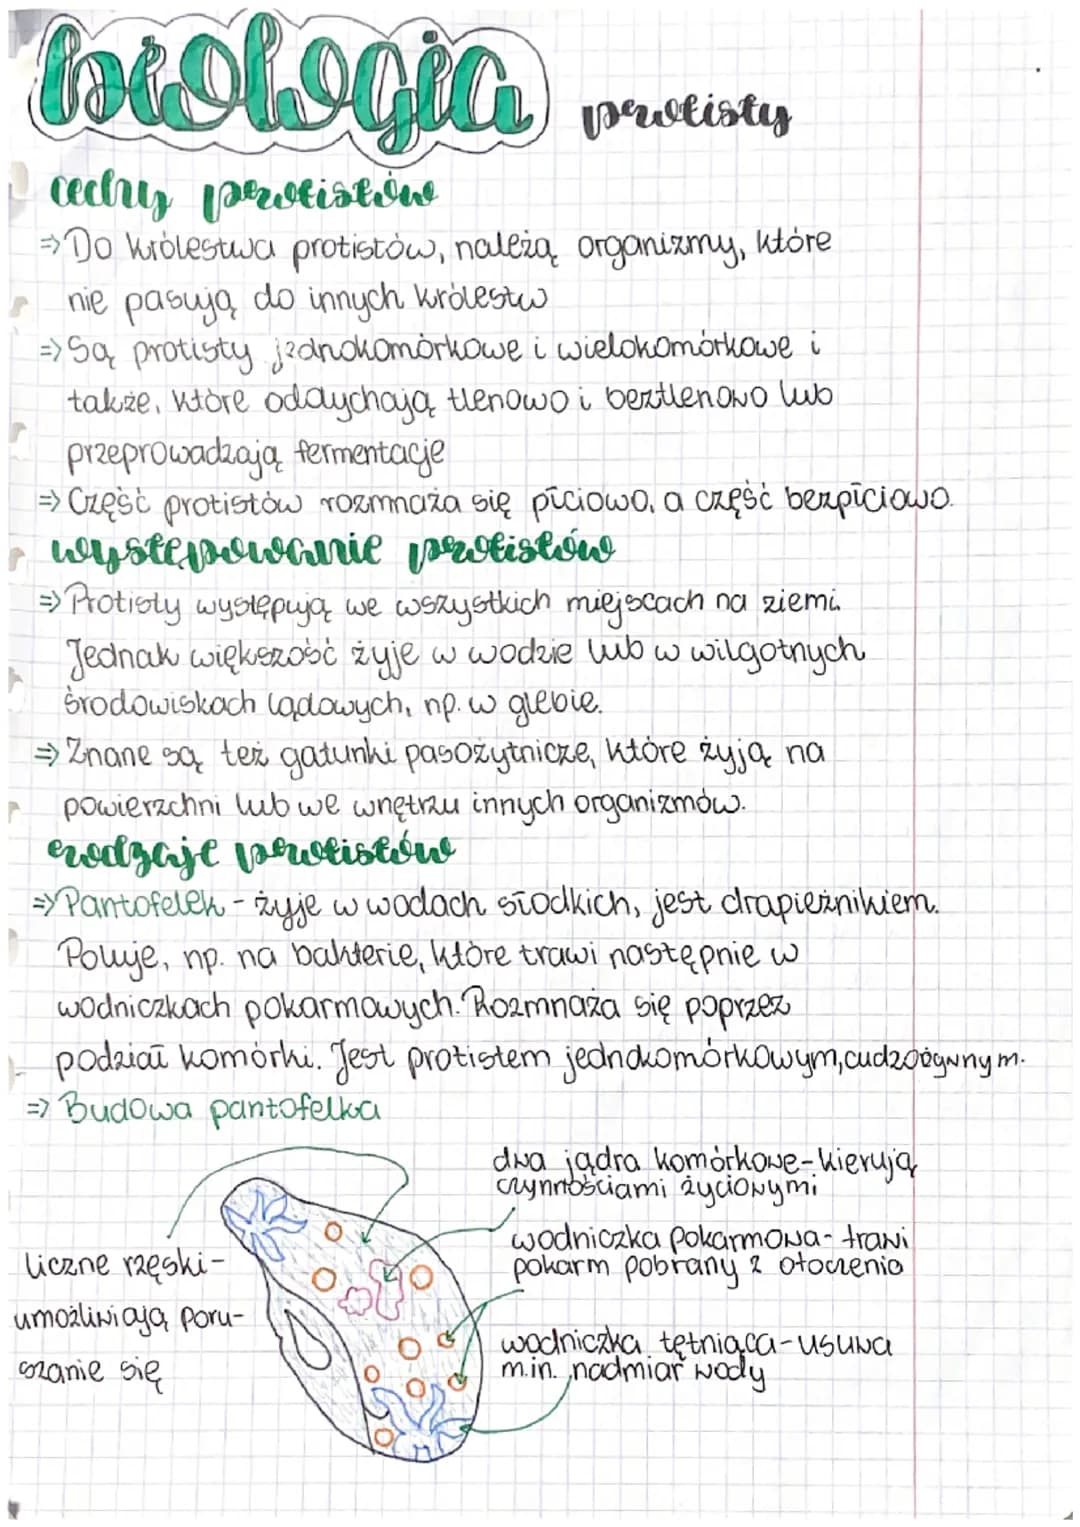 biologia protisty
cechy protistów
=> Do królestwa protistów, należą organizmy, które
nie pasują do innych królestw
=> Są protisty jednokomórkowe i wielokomórkowe i
także, które oddychają tlenowo i beztlenowo lub
przeprowadzają fermentacje
=> Część protistów rozmnaża się płciowo, a część bezpłciowo.
występowanie protistów
=> Protisty występują we wszystkich miejscach na ziemi.
Jednak większość żyje w wodzie lub w wilgotnych
środowiskach lądowych, np. w glebie.
=> Znane są też gatunki pasożytnicze, które żyją na
powierzchni lub we wnętrzu innych organizmów.
rodzaje protistów
=> Pantofelek - żyje w wodach słodkich, jest drapieżnikiem.
Poluje, np. na bakterie, które trawi następnie w
wodniczkach pokarmowych. Rozmnaża się poprzez
podział komórki. Jest protistem jednokomórkowym, cudzożywnym.
=> Budowa pantofelka
dwa jądra komórkowe - kierują
czynnościami życiowymi
wodniczka pokarmowa - trawi
pokarm pobrany z otoczenia
liczne rzęski -
umożliwiają poru-
szanie się
wodniczka tętniąca - usuwa
m.in. nadmiar wody